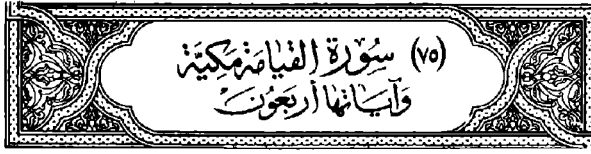 (٧٥) سُورَة القِيَامَة مَكِيَّة
وَآيَاتها أَربَعُونَ